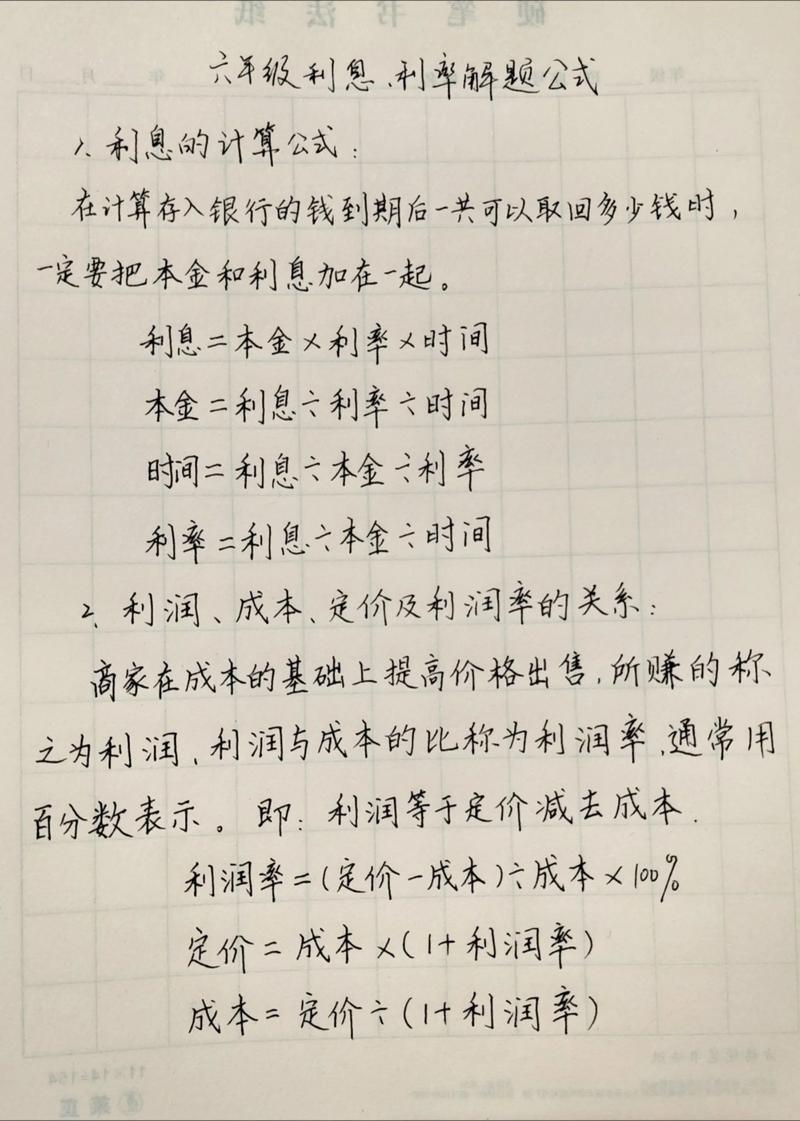 六年级利息、利率解题公式
1、利息的计算公式：
在计算存入银行的钱到期后一共可以取回多少钱时，
一定要把本金和利息加在一起。
利息=本金×利率×时间
本金=利息÷利率÷时间
时间=利息÷本金÷利率
利率=利息÷本金÷时间
2、利润、成本、定价及利润率的关系：
商家在成本的基础上提高价格出售，所赚的称
之为利润、利润与成本的比称为利润率、通常用
百分数表示。即：利润等于定价减去成本.
利润率=(定价-成本)÷成本×100%
定价=成本×(1+利润率)
成本=定价÷(1+利润率)